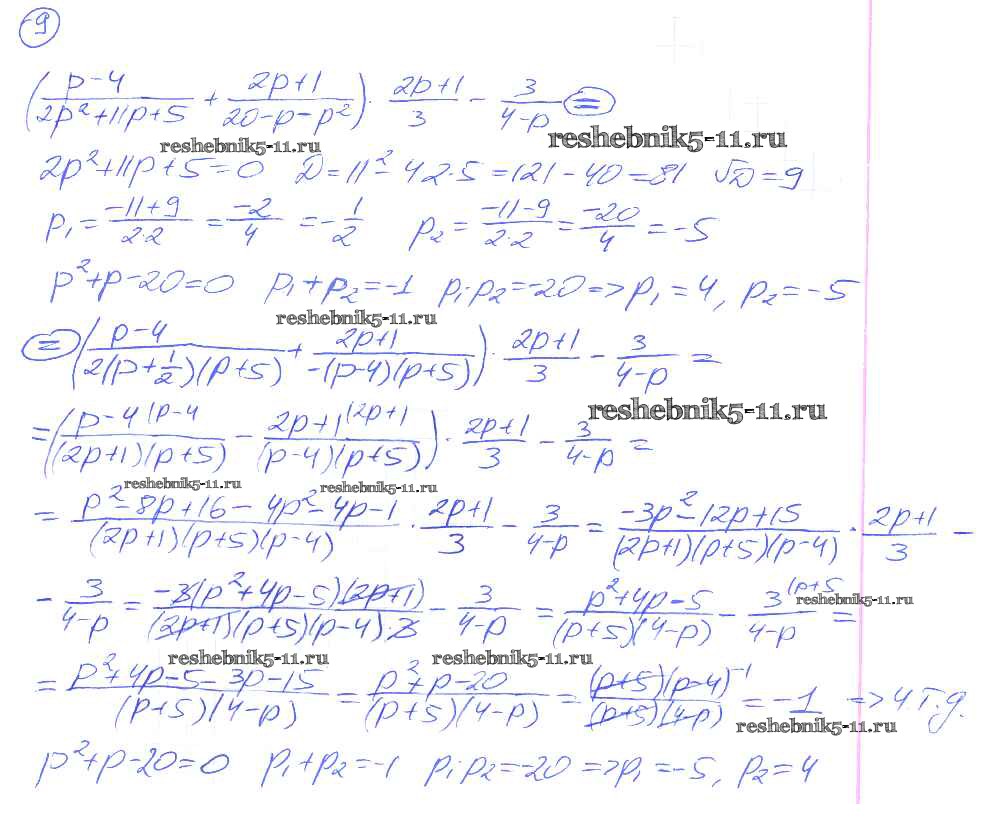 9
((p-4)/(2p²+11p+5) + (2p+1)/(20-p-p²)) · (2p+1)/3 - 3/(4-p) =
reshebnik5-11.ru
reshebnik5-11.ru
2p²+11p+5=0 D=11²-4·2·5=121-40=81 √D=9
p₁=(-11+9)/(2·2)=(-2)/4=-1/2 p₂=(-11-9)/(2·2)=(-20)/4=-5
p²+p-20=0 p₁+p₂=-1 p₁·p₂=-20=>p₁=4, p₂=-5
reshebnik5-11.ru
= ((p-4)/(2(p+1/2)(p+5)) + (2p+1)/(-(p-4)(p+5))) · (2p+1)/3 - 3/(4-p) =
reshebnik5-11.ru
= ((p-4 (p-4)/((2p+1)(p+5)) - (2p+1 (2p+1)/((p-4)(p+5))) · (2p+1)/3 - 3/(4-p) =
reshebnik5-11.ru
reshebnik5-11.ru
= (p²-8p+16-4p²-4p-1)/((2p+1)(p+5)(p-4)) · (2p+1)/3 - 3/(4-p) = (-3p²-12p+15)/((2p+1)(p+5)(p-4)) · (2p+1)/3 -
- 3/(4-p) = (-3(p²+4p-5)(2p+1))/((2p+1)(p+5)(p-4)·3) - 3/(4-p) = (p²+4p-5)/((p+5)(4-p)) - (3 (p+5)/(4-p) =
reshebnik5-11.ru
reshebnik5-11.ru
reshebnik5-11.ru
= (p²+4p-5-3p-15)/((p+5)(4-p)) = (p²+p-20)/((p+5)(4-p)) = ((p+5)(p-4)⁻¹)/((p+5)(4-p)) = -1 => ч.т.д.
reshebnik5-11.ru
p²+p-20=0 p₁+p₂=-1 p₁·p₂=-20=>p₁=-5, p₂=4